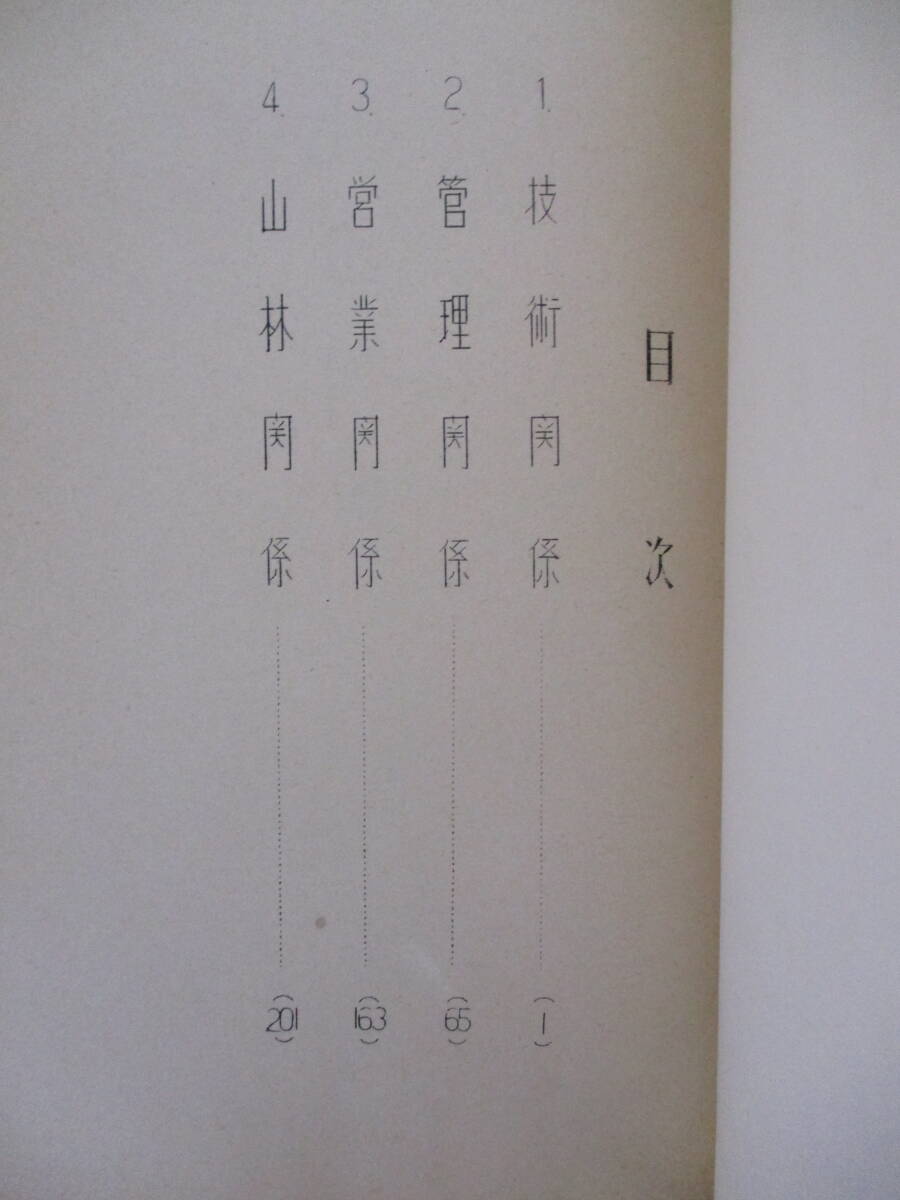 目次
1. 技術関係 (1)
2. 管理関係 (65)
3. 営業関係 (163)
4. 山林関係 (201)